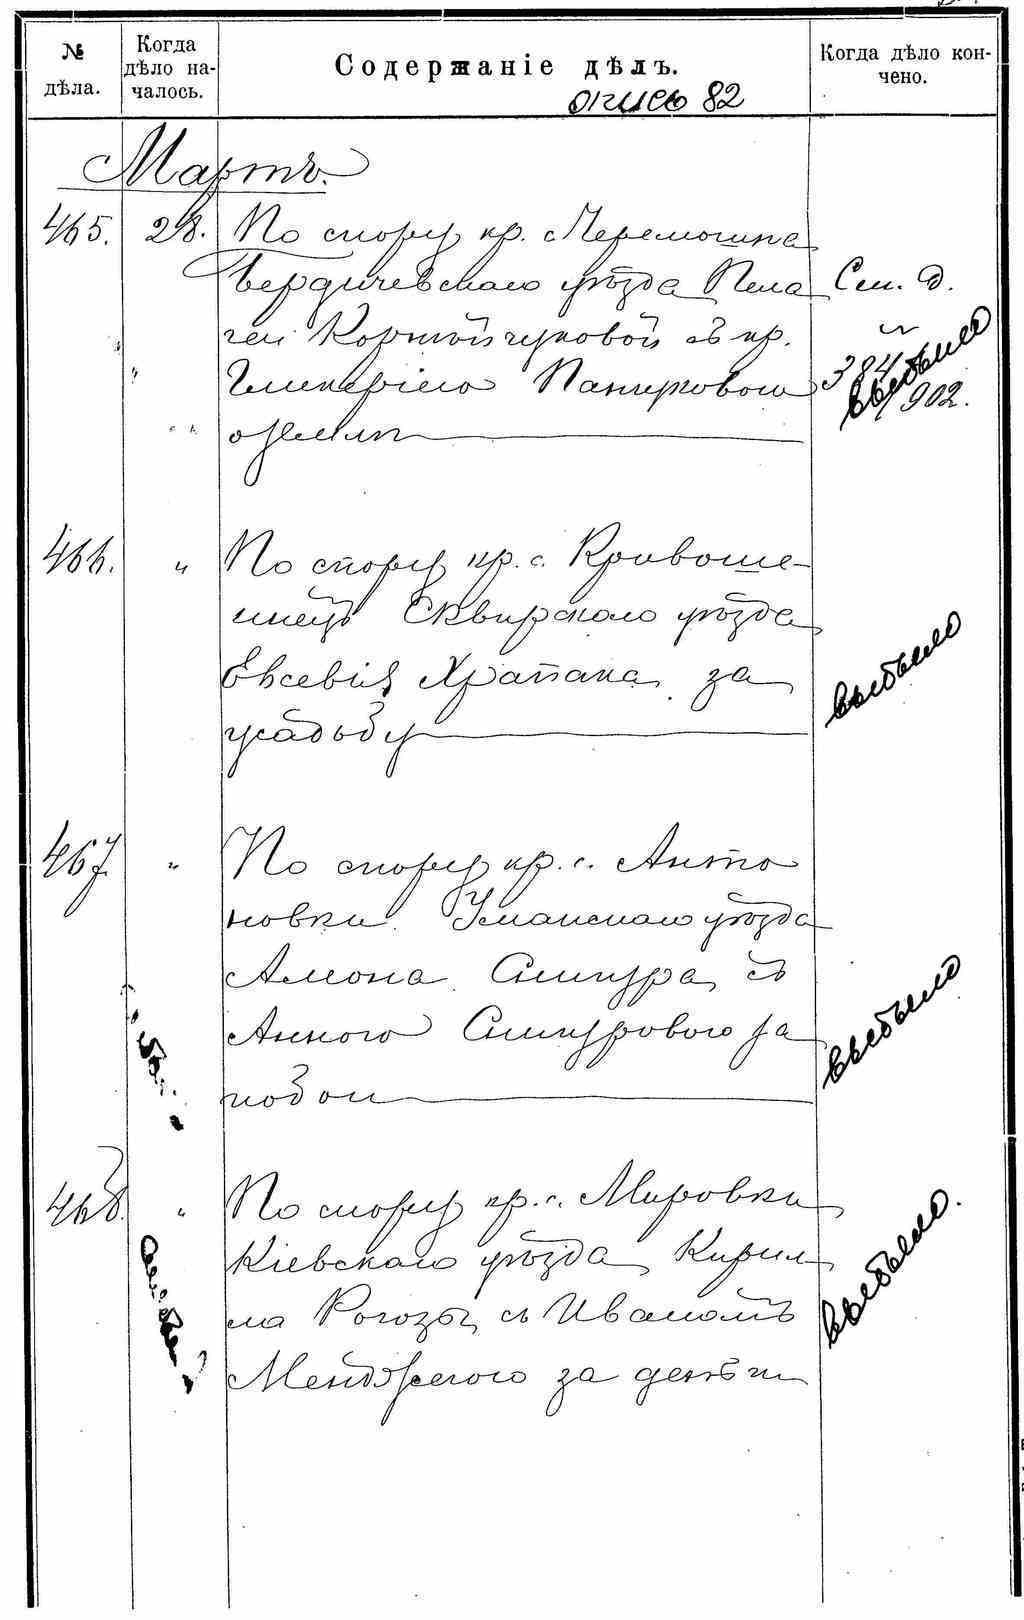 № дѣла.
Когда дѣло началось.
Содержаніе дѣлъ.
Когда дѣло кончено.
опись 82
Мартъ.
465. 28. По спору кр. с. Черемошна
Бердичевскаго уѣзда Пела
геи Кортойчуковой съ кр.
Гликеріею
о землѣ
См. д.
384
902.
выбыло
466. " По спору кр. с. Кривоше-
инецъ Сквирскаго уѣзда
Евсевія Храпака за
усадьбу
выбыло
467. " По спору кр. с. Анто
новки Уманскаго уѣзда
Амона Снигура съ
Анною Снигуровою за
побои
выбыло
468. " По спору кр. с. Мировки
Кіевскаго уѣзда Кирил
ла Рогоза съ Иваномъ
за деньги
выбыло.